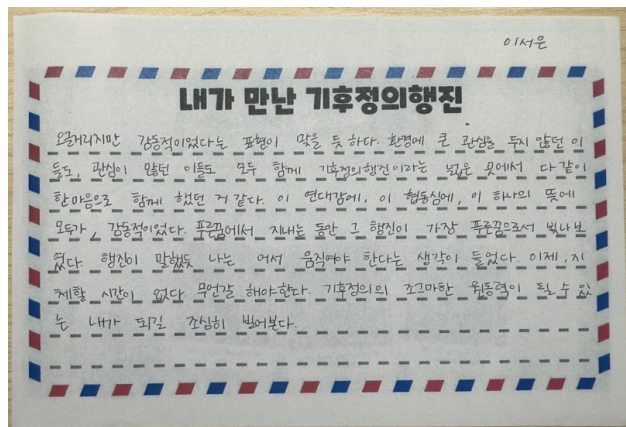 이서은
내가 만난 기후정의행진
오글거리지만 감동적이었다는 표현이 맞을 듯 하다. 환경에 큰 관심을 두지 않던 이
들도, 관심이 많던 이들도 모두 함께 기후정의행진이라는 넓은 곳에서 다같이
한마음으로 함께 했던 거 같다. 이 연대감에, 이 협동심에, 이 하나의 뜻에
모두가, 감동적이었다. 푸른꿈에서 지내는 동안 그 행진이 가장 푸른꿈으로서 빛나보
였다. 행진이 말했듯 나는 어서 움직여야 한다는 생각이 들었다. 이제, 지
체할 시간이 없다. 무언갈 해야한다. 기후정의의 조그마한 원동력이 될 수 있
는 내가 되길 조심히 빌어본다.